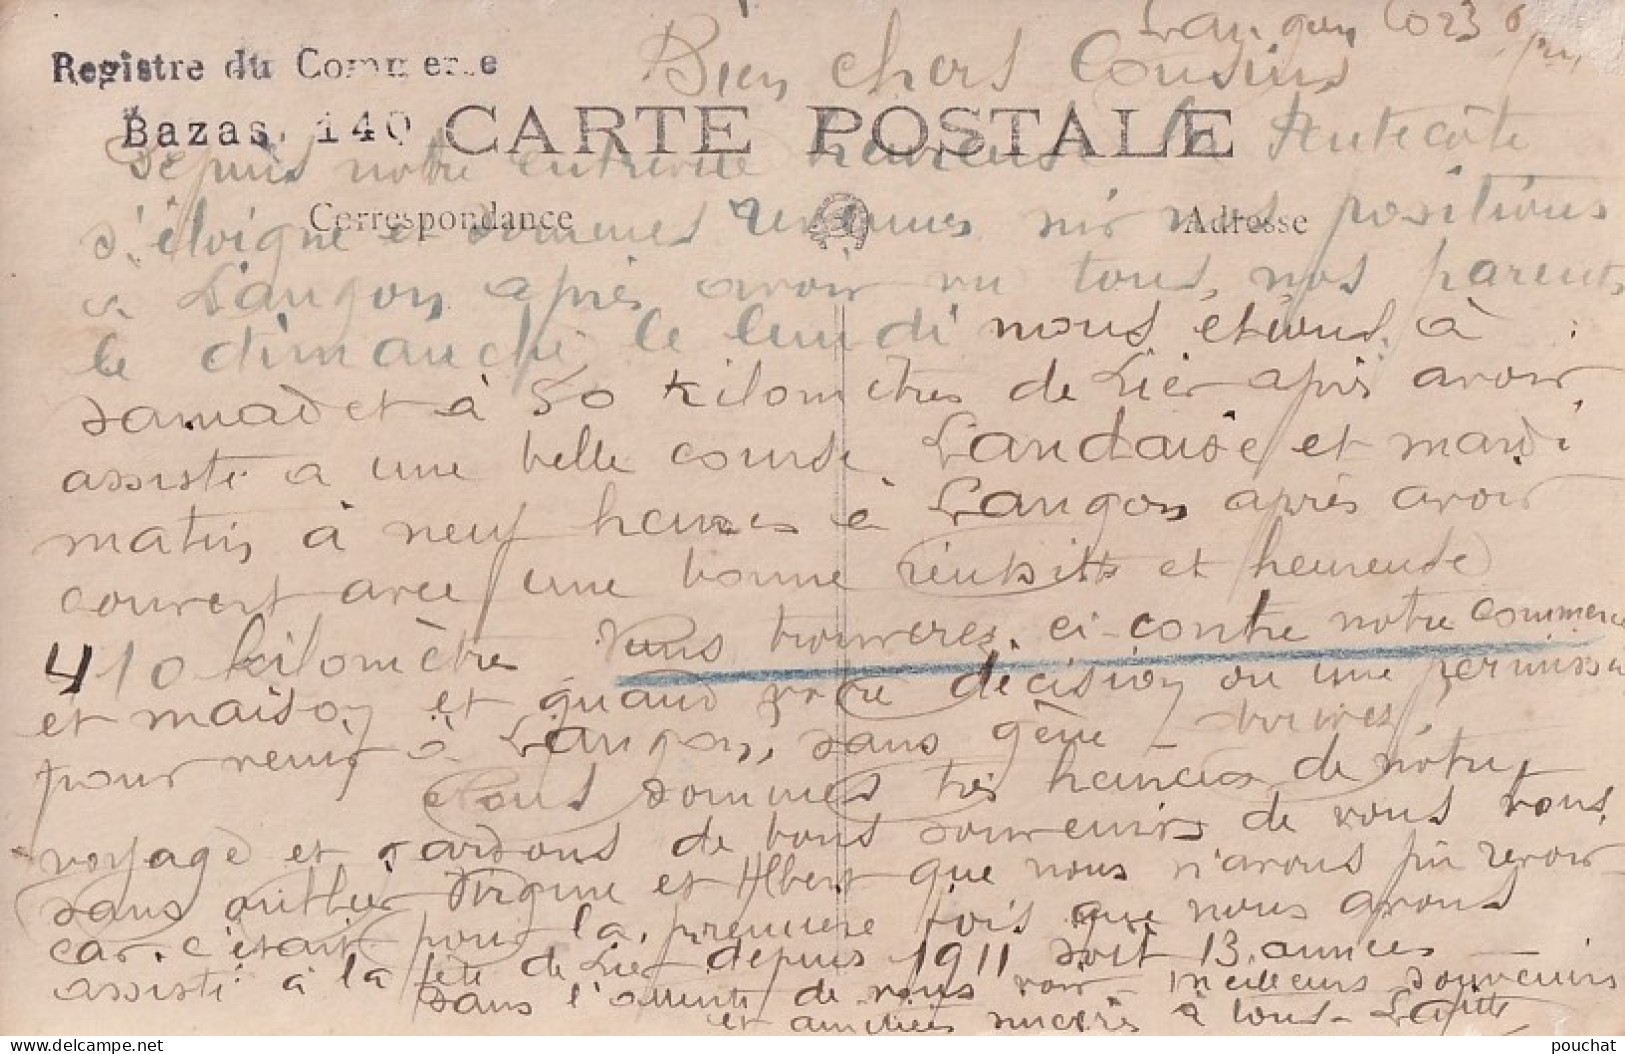 Langon 23
Registre du Commerce
Bien chers Cousins
Bazas. 140
CARTE POSTALE
Depuis notre entrevue heureuse la Pentecôte
Correspondance
Adresse
s'éloigne et sommes revenus sur nos positions
a Langon après avoir vu tous nos parents
le dimanche le lundi nous étions à
Samadet à 50 kilomètres de Lier après avoir
assisté a une belle course Landaise et mardi
matin à neuf heures à Langon après avoir
couvert avec une bonne réussite et heureuse
410 kilomètres Vous trouverez ci-contre notre commerce
et maison et quand votre décision ou une permission
pour venir à Langon, sans gêne
Nous sommes très heureux de notre
voyage et gardons de bons souvenirs de vous tous
sans oublier Virginie et Albert que nous n'avons pu revoir
car c'était pour la première fois que nous avons
assisté à la fête de Lier depuis 1911 soit 13 années
dans l'attente de vous voir meilleurs souvenirs
et amitiés sincères à tous - Lafitte
pouchat
delcampe.net